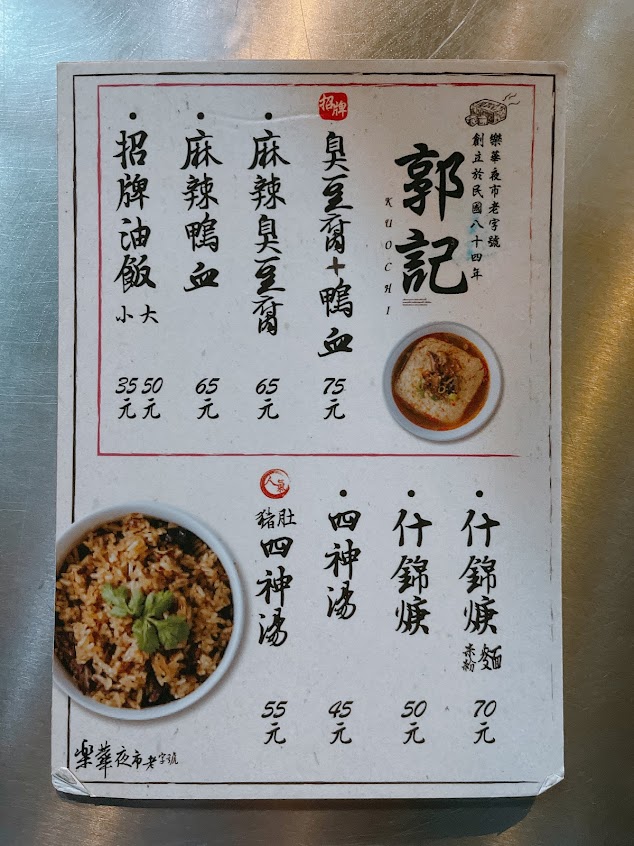 樂華夜市老字號
創立於民國八十四年
郭記
KUO CHI
招牌
臭豆腐+鴨血
75元
麻辣臭豆腐
65元
麻辣鴨血
65元
招牌油飯
大 50元
小 35元
什錦焿
麵
米粉
70元
什錦焿
50元
四神湯
45元
人氣
豬肚
四神湯
55元
樂華夜市老字號